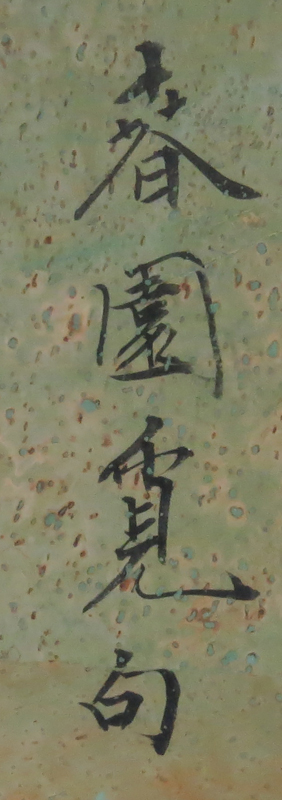 春園覓句